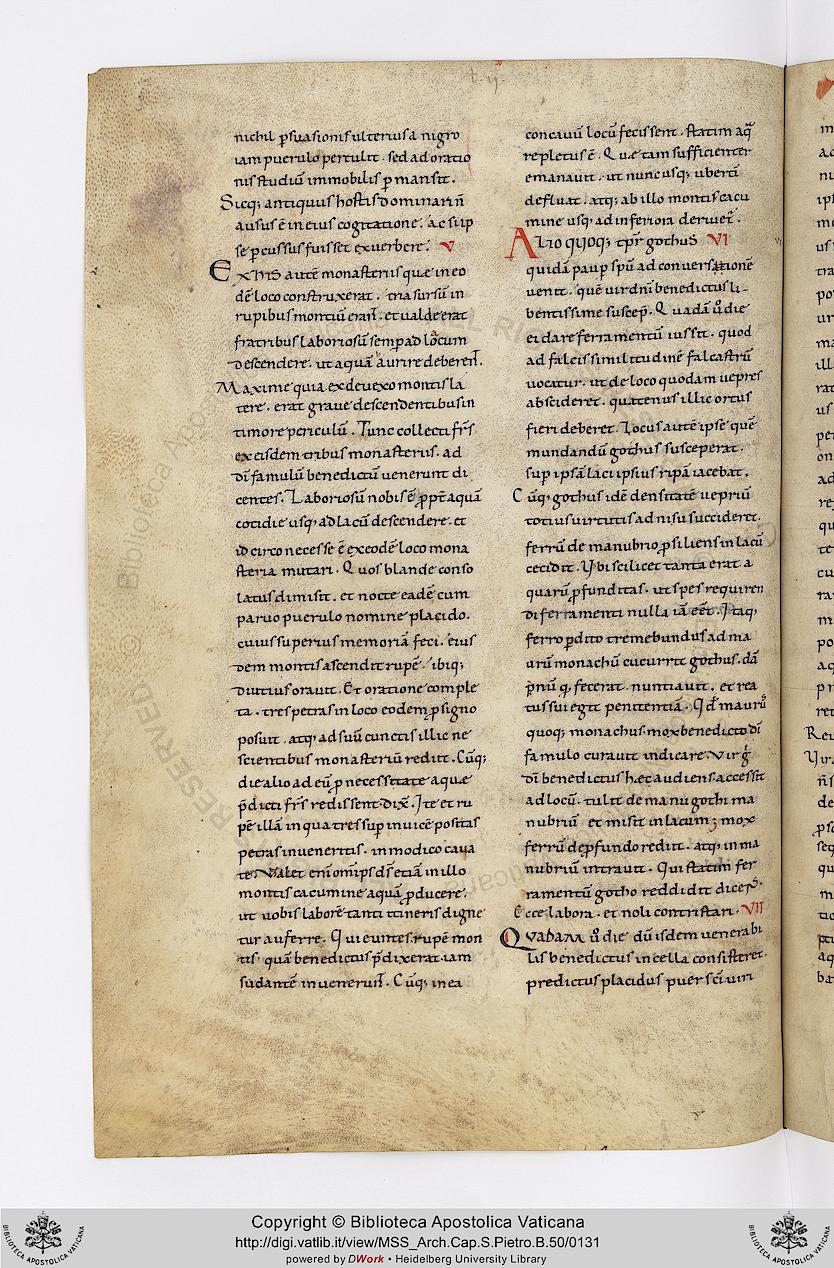 nichil p̄suasionis ulterius a nigro
iam puerulo pertulit. sed ad oratio
nis studiū immobilis p̄mansit.
Sicq; antiquus hostis dominari ñ
ausus ē in eius cogitatione. ac si ip
se p̄cussus fuisset ex verbere. V
EX HIS autē monasteriis quæ in eo
dē loco construxerat. tria sursū in
rupibus montiū erant̄. et valde erat
fratribus laboriosū semp̄ ad locum
descendere. ut aquā aurire deberent̄.
Maxime quia ex devexo montis la
tere. erat grave descendentibus in
timore periculū. Tunc collecti fr̄s
ex eisdem tribus monasteriis. ad
dī famulū benedictū uenerunt di
centes. Laboriosū nobis ē p̄pt̄ aquā
cotidie usq; ad lacū descendere. et
idcirco necesse ē ex eodē loco mona
steria mutari. Quos blande conso
latus dimisit. et nocte eadē cum
parvo puerulo nomine placido.
cuius superius memoriā feci. eius
dem montis ascendit rupē. ibiq;
diutius oravit. Et oratione comple
ta. tres petras in loco eodem p̄ signo
posuit. atq; ad suū cunctis illic ne
scientibus monasteriū rediit. Cūq;
die alio ad eū p̄ necessitate aquæ
p̄dicti fr̄s redissent. dix̄. Ite et ru
pē illā in qua tres sup̄ invicē positas
petras inveneritis. in modico cava
te. Valet enī omīps dś etiā in illo
montis cacumine aquā p̄ducere.
ut vobis laborē tanti itineris digne
tur auferre. Qui euntes. rupē mon
tis quā benedictus p̄dixerat. iam
sudantē invenerunt̄. Cūq; in ea
concavū locū fecissent. statim aq̄
repletus ē. Quæ tam sufficienter
emanavit. ut nunc usq; ubertī
defluat. atq; ab illo montis cacu
mine usq; ad inferiora derivet̄.
ALIO QUOQ; tp̄r gothus VI
quidā paup̄ spū ad conversationē
venit. quē vir dnī benedictus li-
bentissime suscep̄. Quadā ů die
ei dare ferramentū iussit. quod
ad falcis similitudinē falcastrū
vocatur. ut de loco quodam vepres
abscideret. quatenus illic ortus
fieri deberet. Locus autē ipse quē
mundandū gothus susceperat.
sup̄ ipsā laci ipsius ripā iacebat.
Cūq; gothus idē densitatē vepriū
totius virtutis adnisu succideret.
ferrū de manubrio p̄siliens in lacū
cecidit. Ubi scilicet tanta erat a
quarū p̄funditas. ut spes requiren
di ferramenti nulla iā eēt. Itaq;
ferro p̄dito tremebundus ad ma
urū monachū cucurrit gothus. dā
p̄nū q̨ fecerat. nuntiavit. et rea
tus sui egit penitentiā. Qd̄ maurů
quoq; monachus. mox benedicto dī
famulo curavit indicare. Vir g̊
dī benedictus hæc audiens. accessit
ad locū. tulit de manu gothi ma
nubriū et misit in lacum; mox
ferrū de p̄fundo rediit. atq; in ma
nubriū intravit. Qui statim fer
ramentū gotho reddidit dicens̄.
Ecce labora. et noli contristari. VII
QUADAM ů die dū isdem venerabi
lis benedictus in cella consisteret.
predictus placidus puer scī viri
Copyright © Biblioteca Apostolica Vaticana
http://digi.vatlib.it/view/MSS_Arch.Cap.S.Pietro.B.50/0131
powered by DWork • Heidelberg University Library
BIBLIOTECA APOSTOLICA VATICANA
BIBLIOTECA APOSTOLICA VATICANA